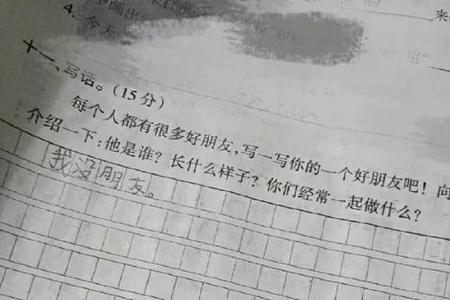 来
4. 今天
十一、写话。(15分)
每个人都有很多好朋友,写一写你的一个好朋友吧!向
介绍一下:他是谁?长什么样子?你们经常一起做什么?
我没朋友。